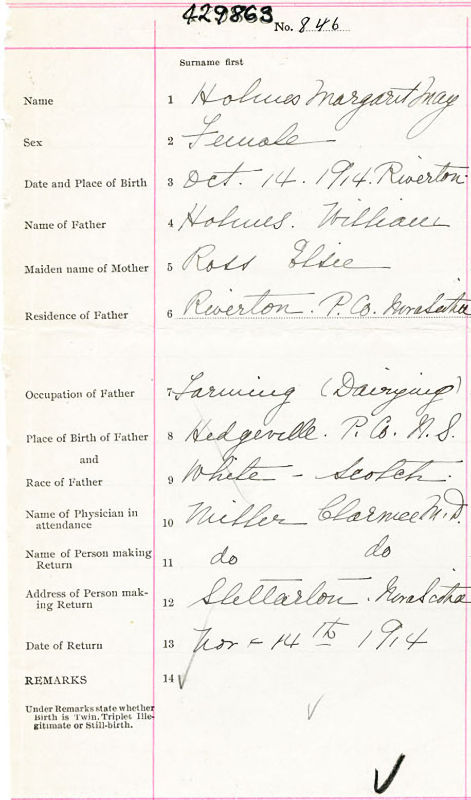 429863
No. 846
Surname first
Name 1 Holmes Margaret May
Sex 2 Female
Date and Place of Birth 3 Oct. 14. 1914. Riverton
Name of Father 4 Holmes. William
Maiden name of Mother 5 Ross Elsie
Residence of Father 6 Riverton. P. Co. Nova Scotia
Occupation of Father 7 Farming (Dairying)
Place of Birth of Father 8 Hedgeville. P. Co. N. S.
and
Race of Father 9 White - Scotch.
Name of Physician in
attendance 10 Miller Clarence M.D.
Name of Person making
Return 11 do do
Address of Person mak-
ing Return 12 Stellarton. Nova Scotia
Date of Return 13 Nov - 14th 1914
REMARKS 14
Under Remarks state whether
Birth is Twin, Triplet Ille-
gitimate or Still-birth.